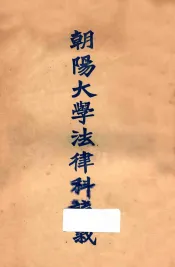 朝陽大學法律科講義